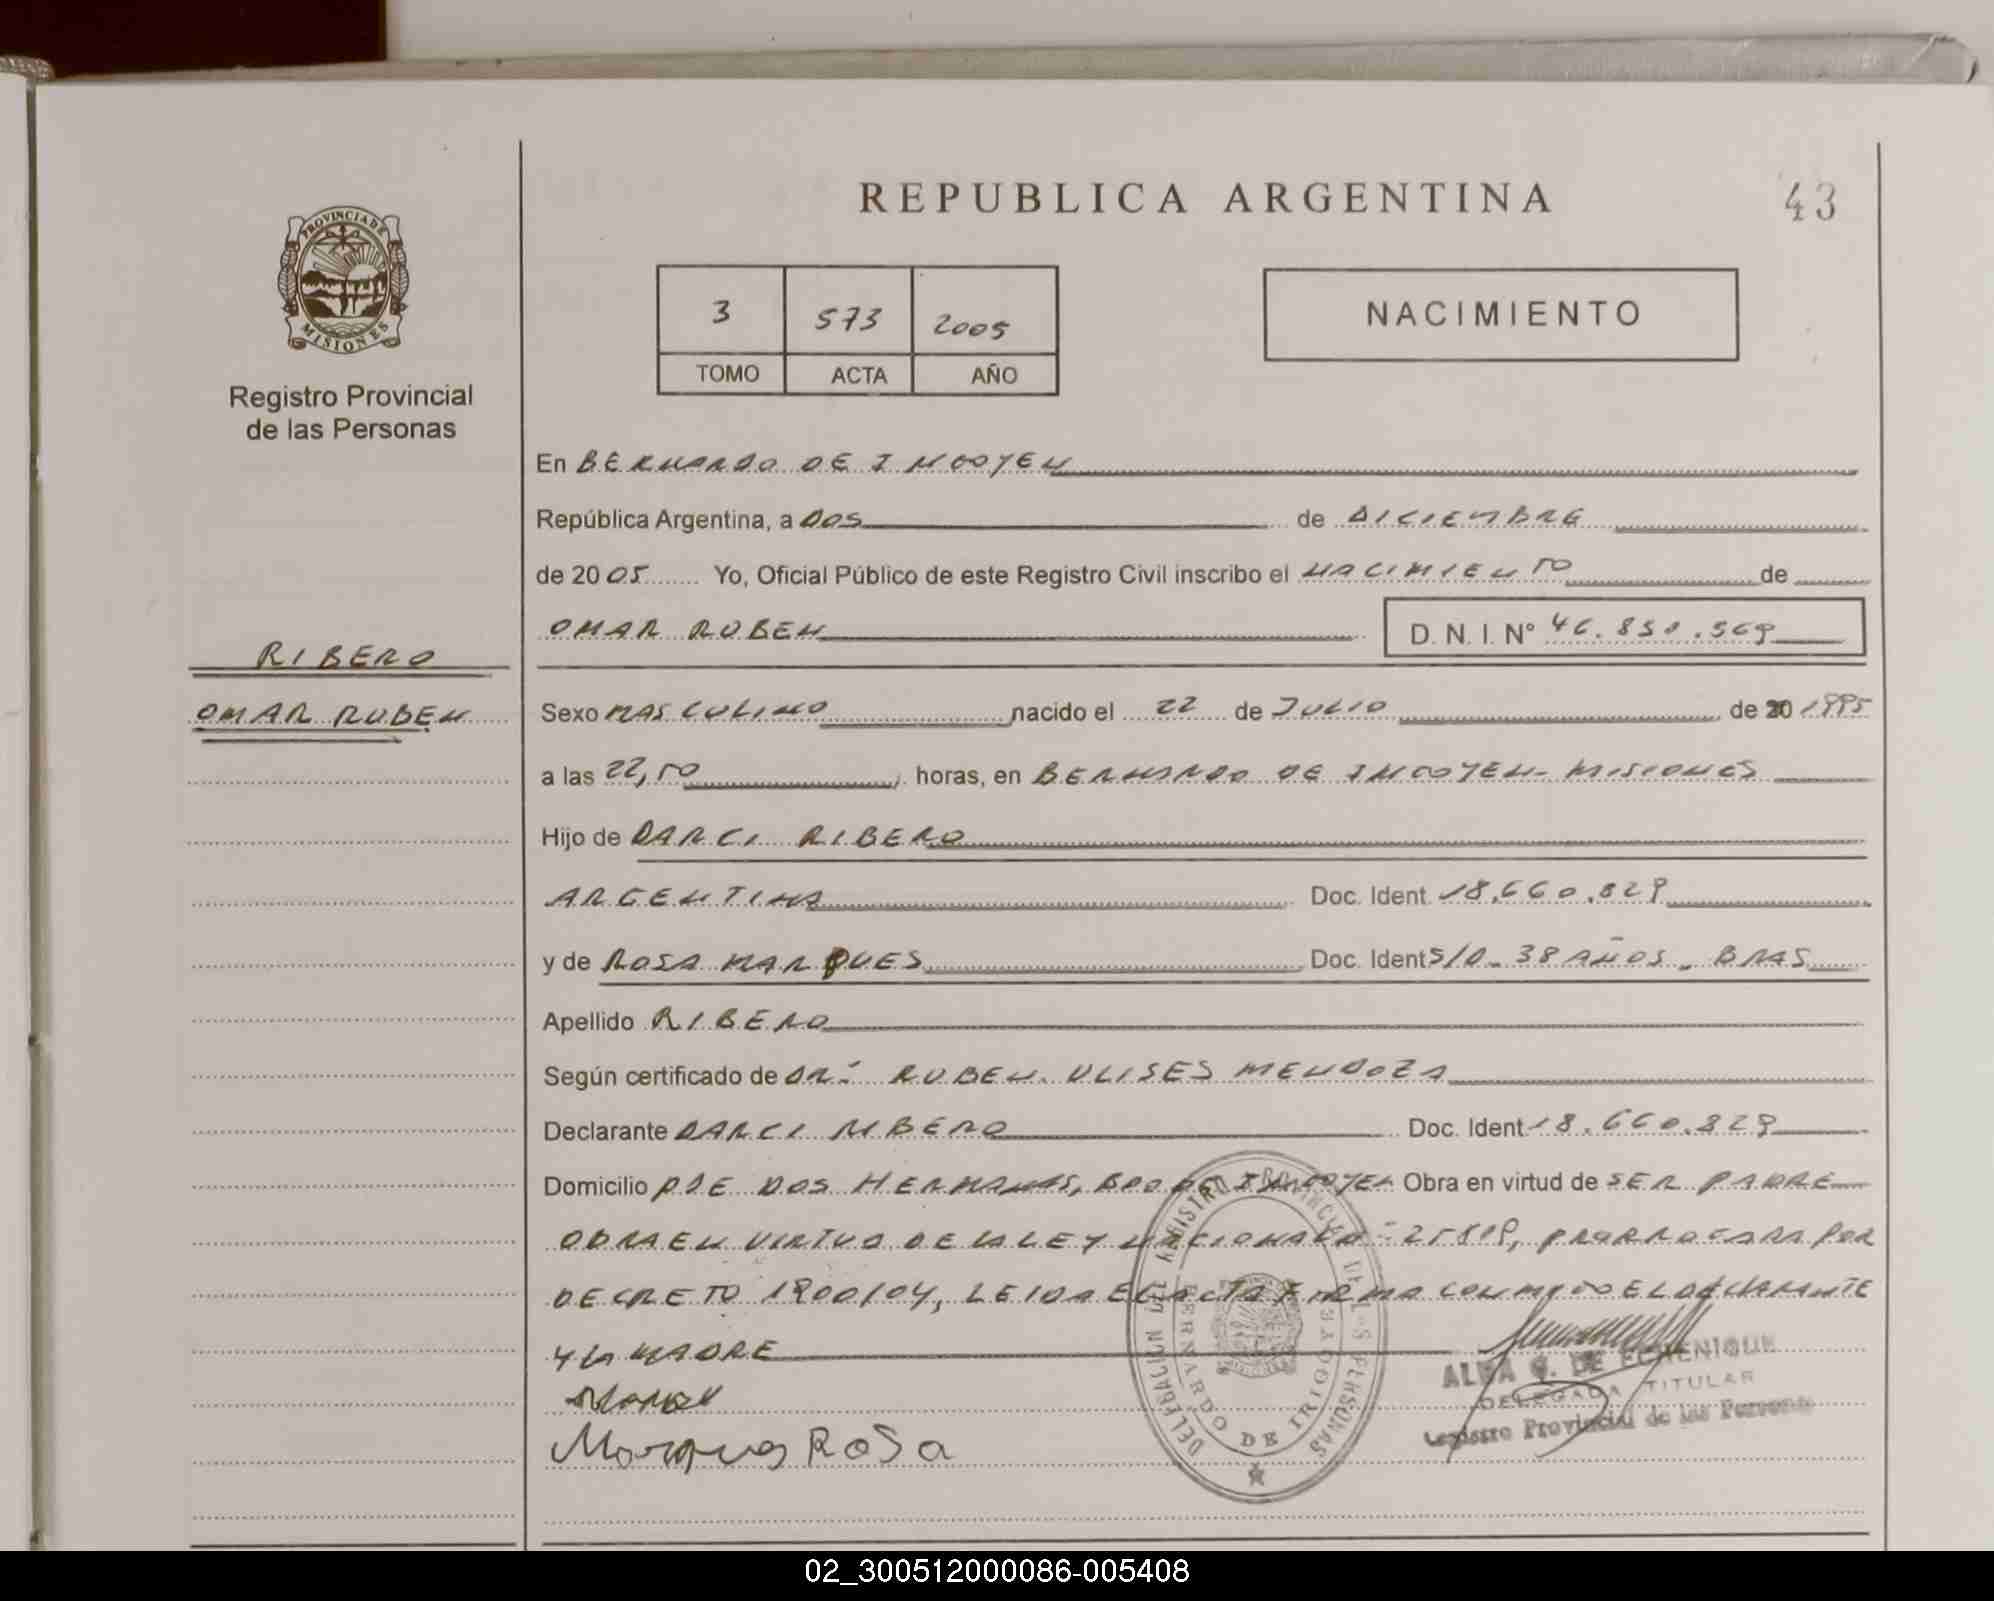 REPUBLICA ARGENTINA
43
PROVINCIA DE
MISIONES
Registro Provincial
de las Personas
3 573 2005
TOMO ACTA AÑO
NACIMIENTO
En BERNARDO DE IRIGOYEN
República Argentina, a DOS de DICIEMBRE
de 20 05 Yo, Oficial Público de este Registro Civil inscribo el NACIMIENTO de
OMAR RUBEN D. N. I. Nº 46.850.569
RIBERO
OMAR RUBEN
Sexo MASCULINO nacido el 22 de JULIO de 20 1995
a las 22,50 horas, en BERNARDO DE IRIGOYEN - MISIONES
Hijo de DARCI RIBERO
ARGENTINA Doc. Ident. 18.660.829
y de ROSA MARQUES Doc. Ident S/D - 38 AÑOS - BRAS
Apellido RIBERO
Según certificado de DR. RUBEN ULISES MENDOZA
Declarante DARCI RIBERO Doc. Ident 18.660.829
Domicilio PJE DOS HERMANAS, BDO DE IRIGOYEN Obra en virtud de SER PADRE
OBRA EN VIRTUD DE LA LEY NACIONAL Nº 25819, PRORROGADA POR
DECRETO 1800/04, LEIDA EL ACTA FIRMA CONMIGO EL DECLARANTE
Y LA MADRE
Marques RoSa
DELEGACION DEL REGISTRO PROVINCIAL DE LAS PERSONAS
BERNARDO DE IRIGOYEN
ALBA G. DE ECHENIQUE
DELEGADA TITULAR
Registro Provincial de las Personas
02_300512000086-005408